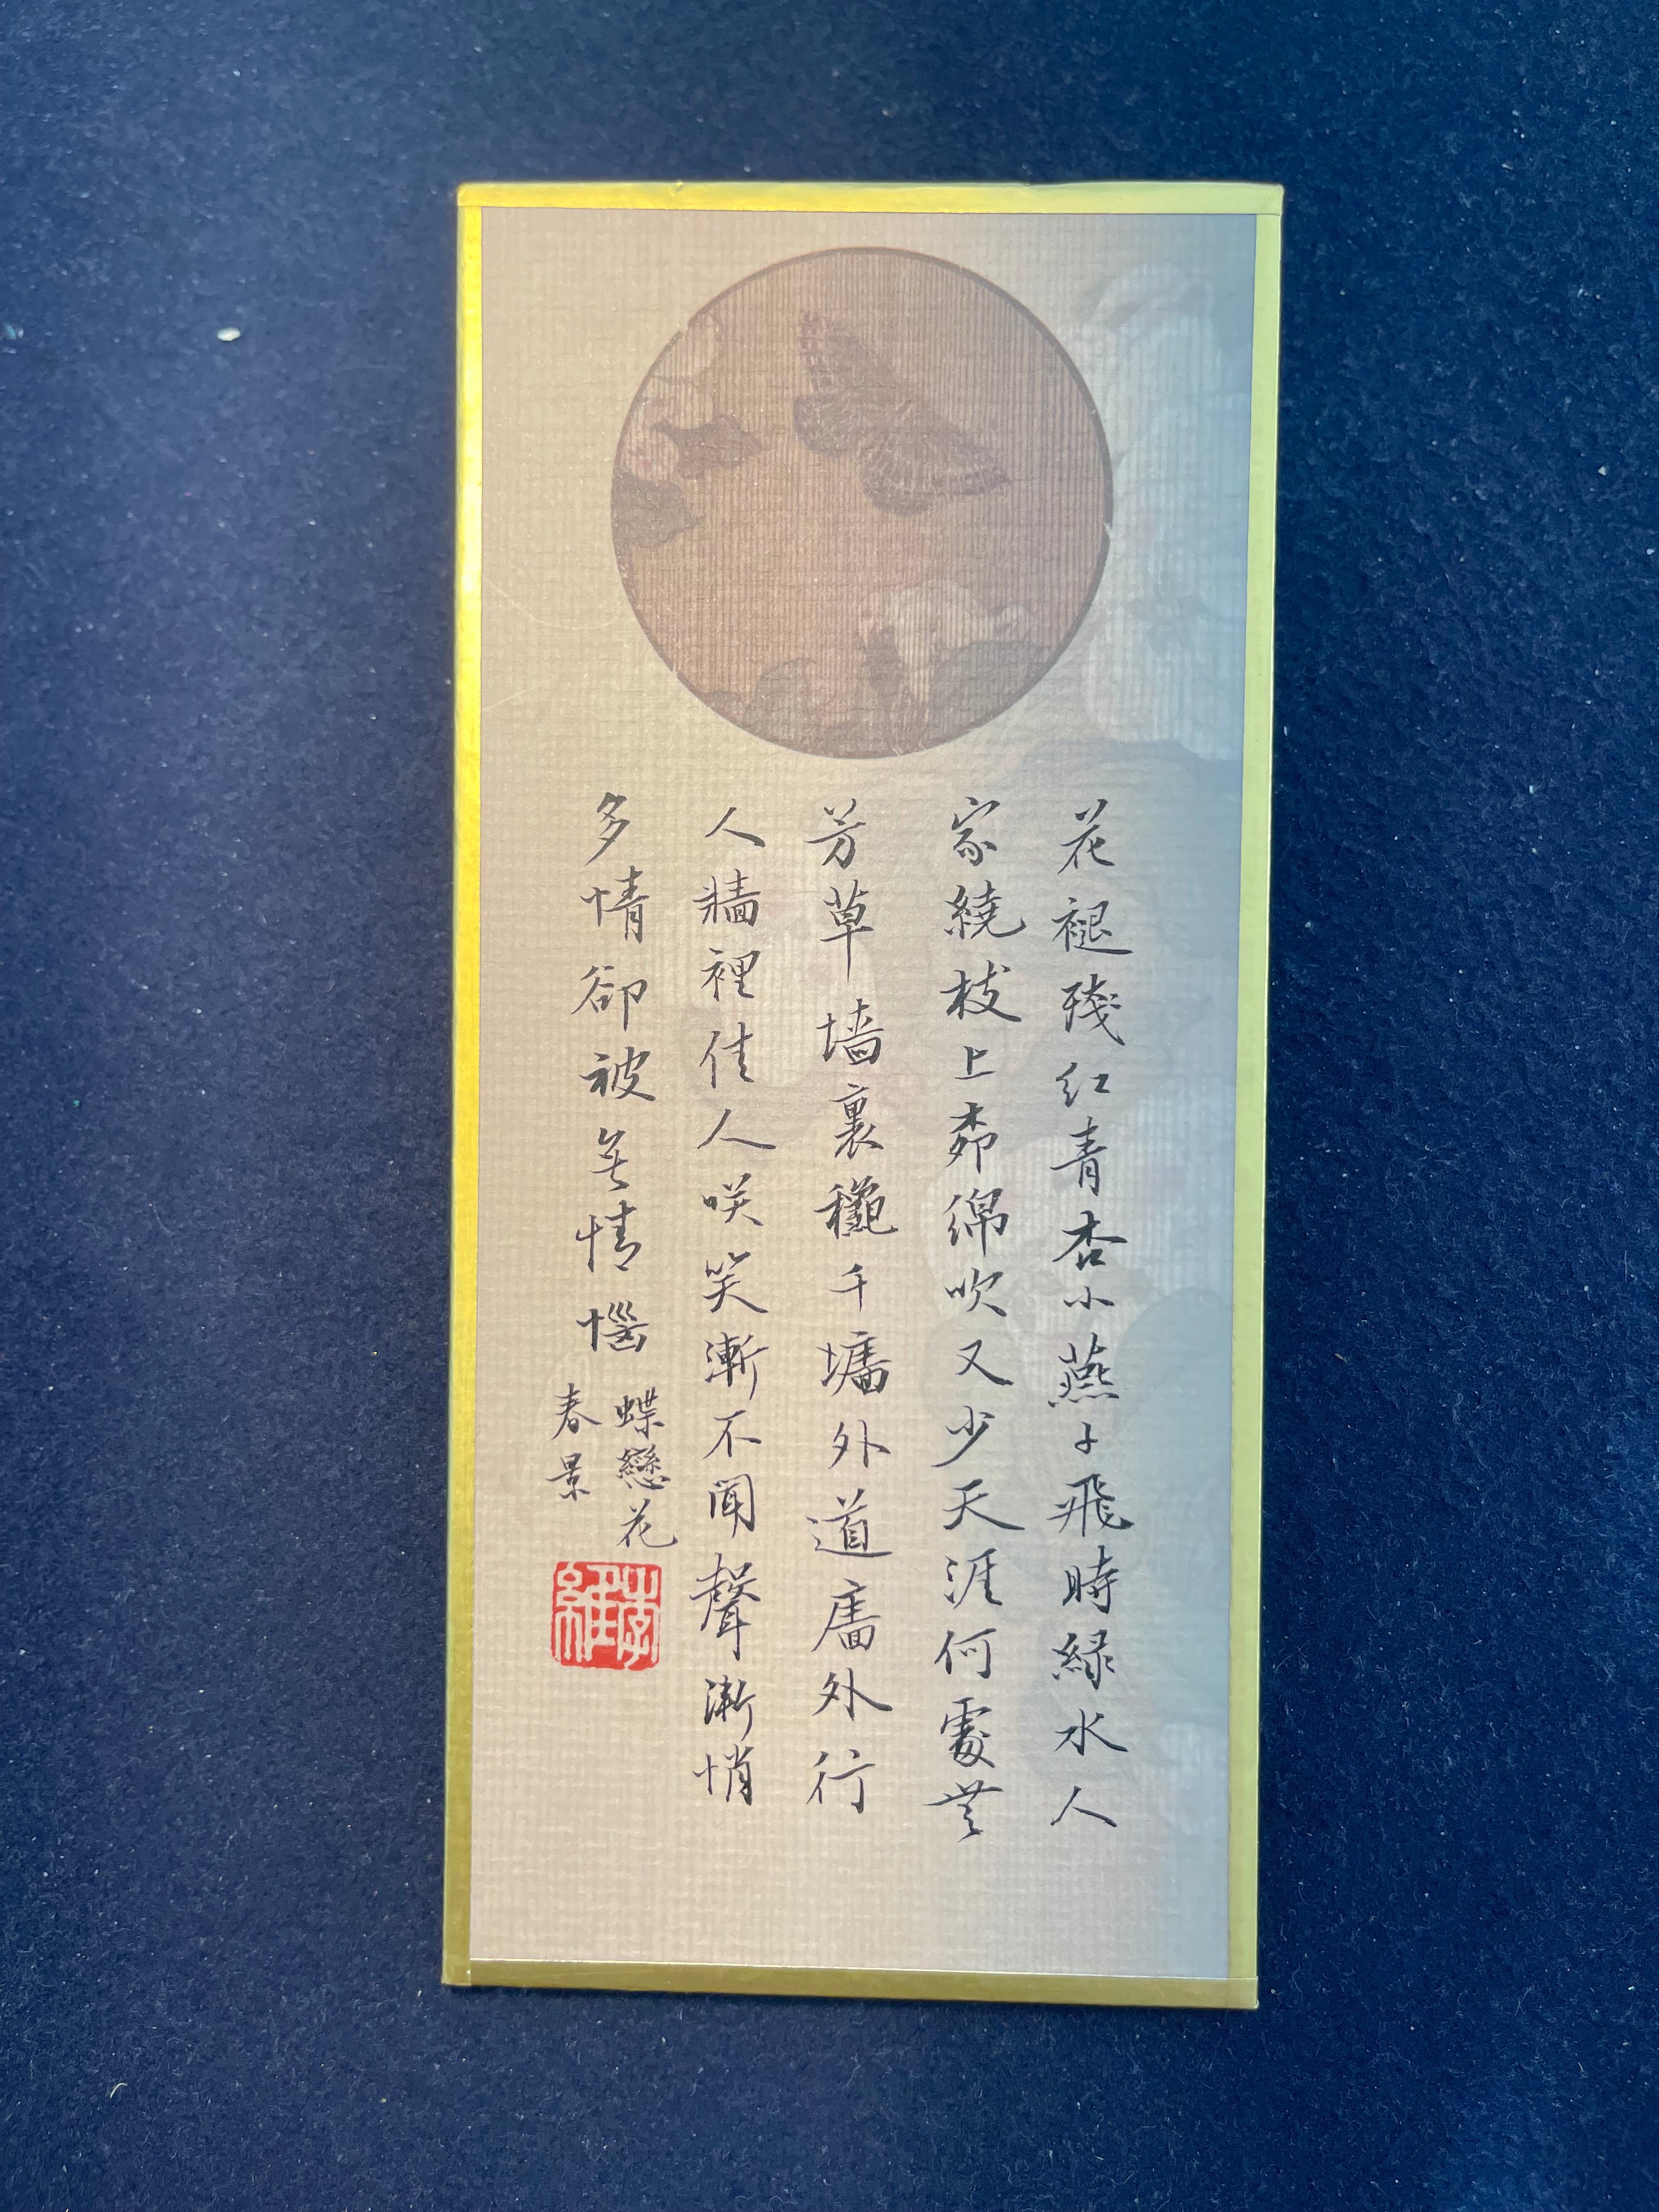 花褪殘红青杏小燕子飛時緑水人
家繞枝上桺綿吹又少天涯何處無
芳草墙裏鞦千墻外道牆外行
人牆裡佳人咲笑漸不闻聲漸悄
多情卻被无情惱
蝶戀花
春景